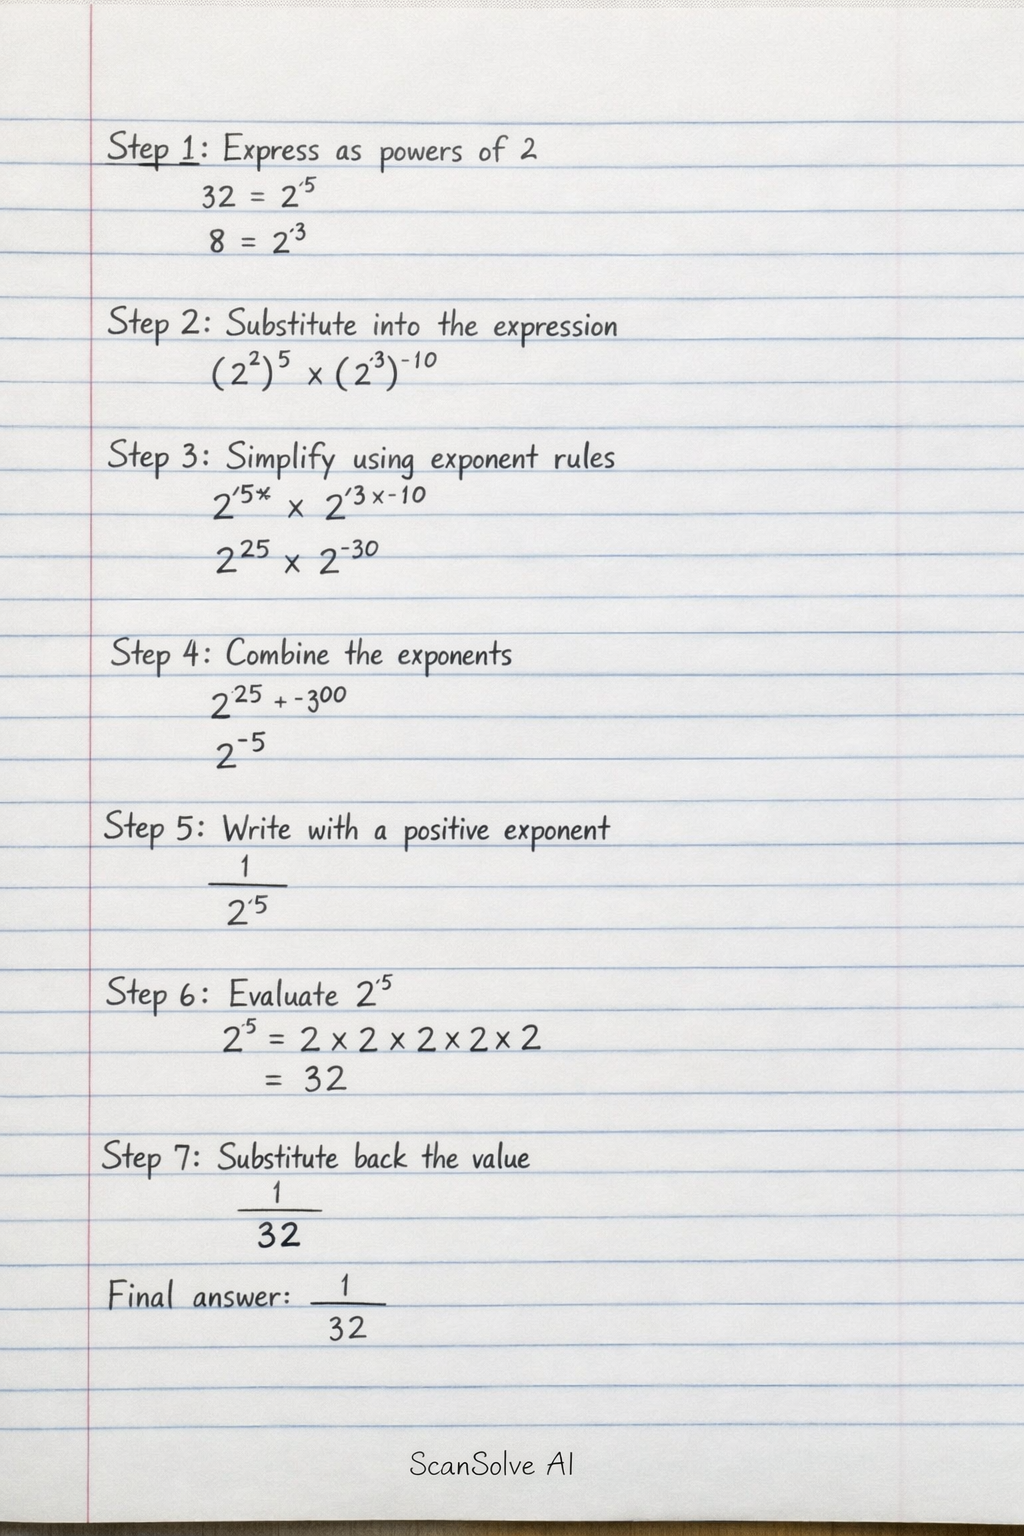 Step 1: Express as powers of 2
32 = 2^'5
8 = 2^'3
Step 2: Substitute into the expression
(2^2)^5 × (2^'3)^-10
Step 3: Simplify using exponent rules
2^'5× × 2^'3×-10
2^25 × 2^-30
Step 4: Combine the exponents
2^25 + -300
2^-5
Step 5: Write with a positive exponent
1
2^'5
Step 6: Evaluate 2^'5
2^'5 = 2 × 2 × 2 × 2 × 2
= 32
Step 7: Substitute back the value
1
32
Final answer: 1
32
ScanSolve AI